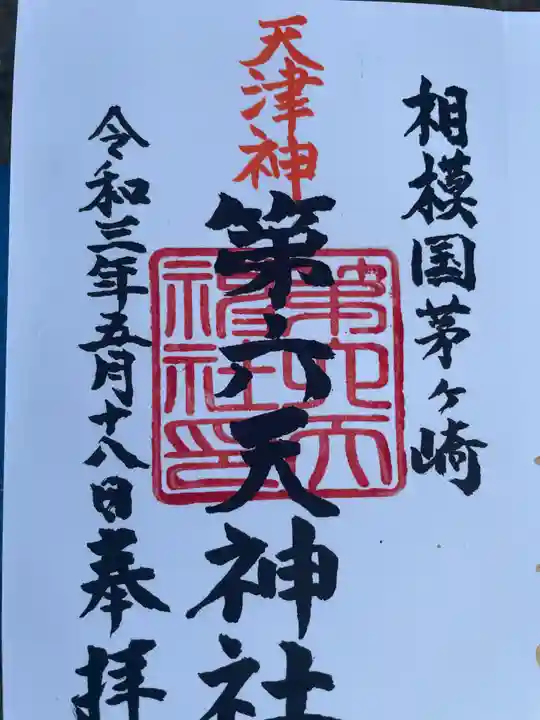 相模国茅ヶ崎
天津神
第六天神社
第六天
神社印
令和三年五月十八日奉拝